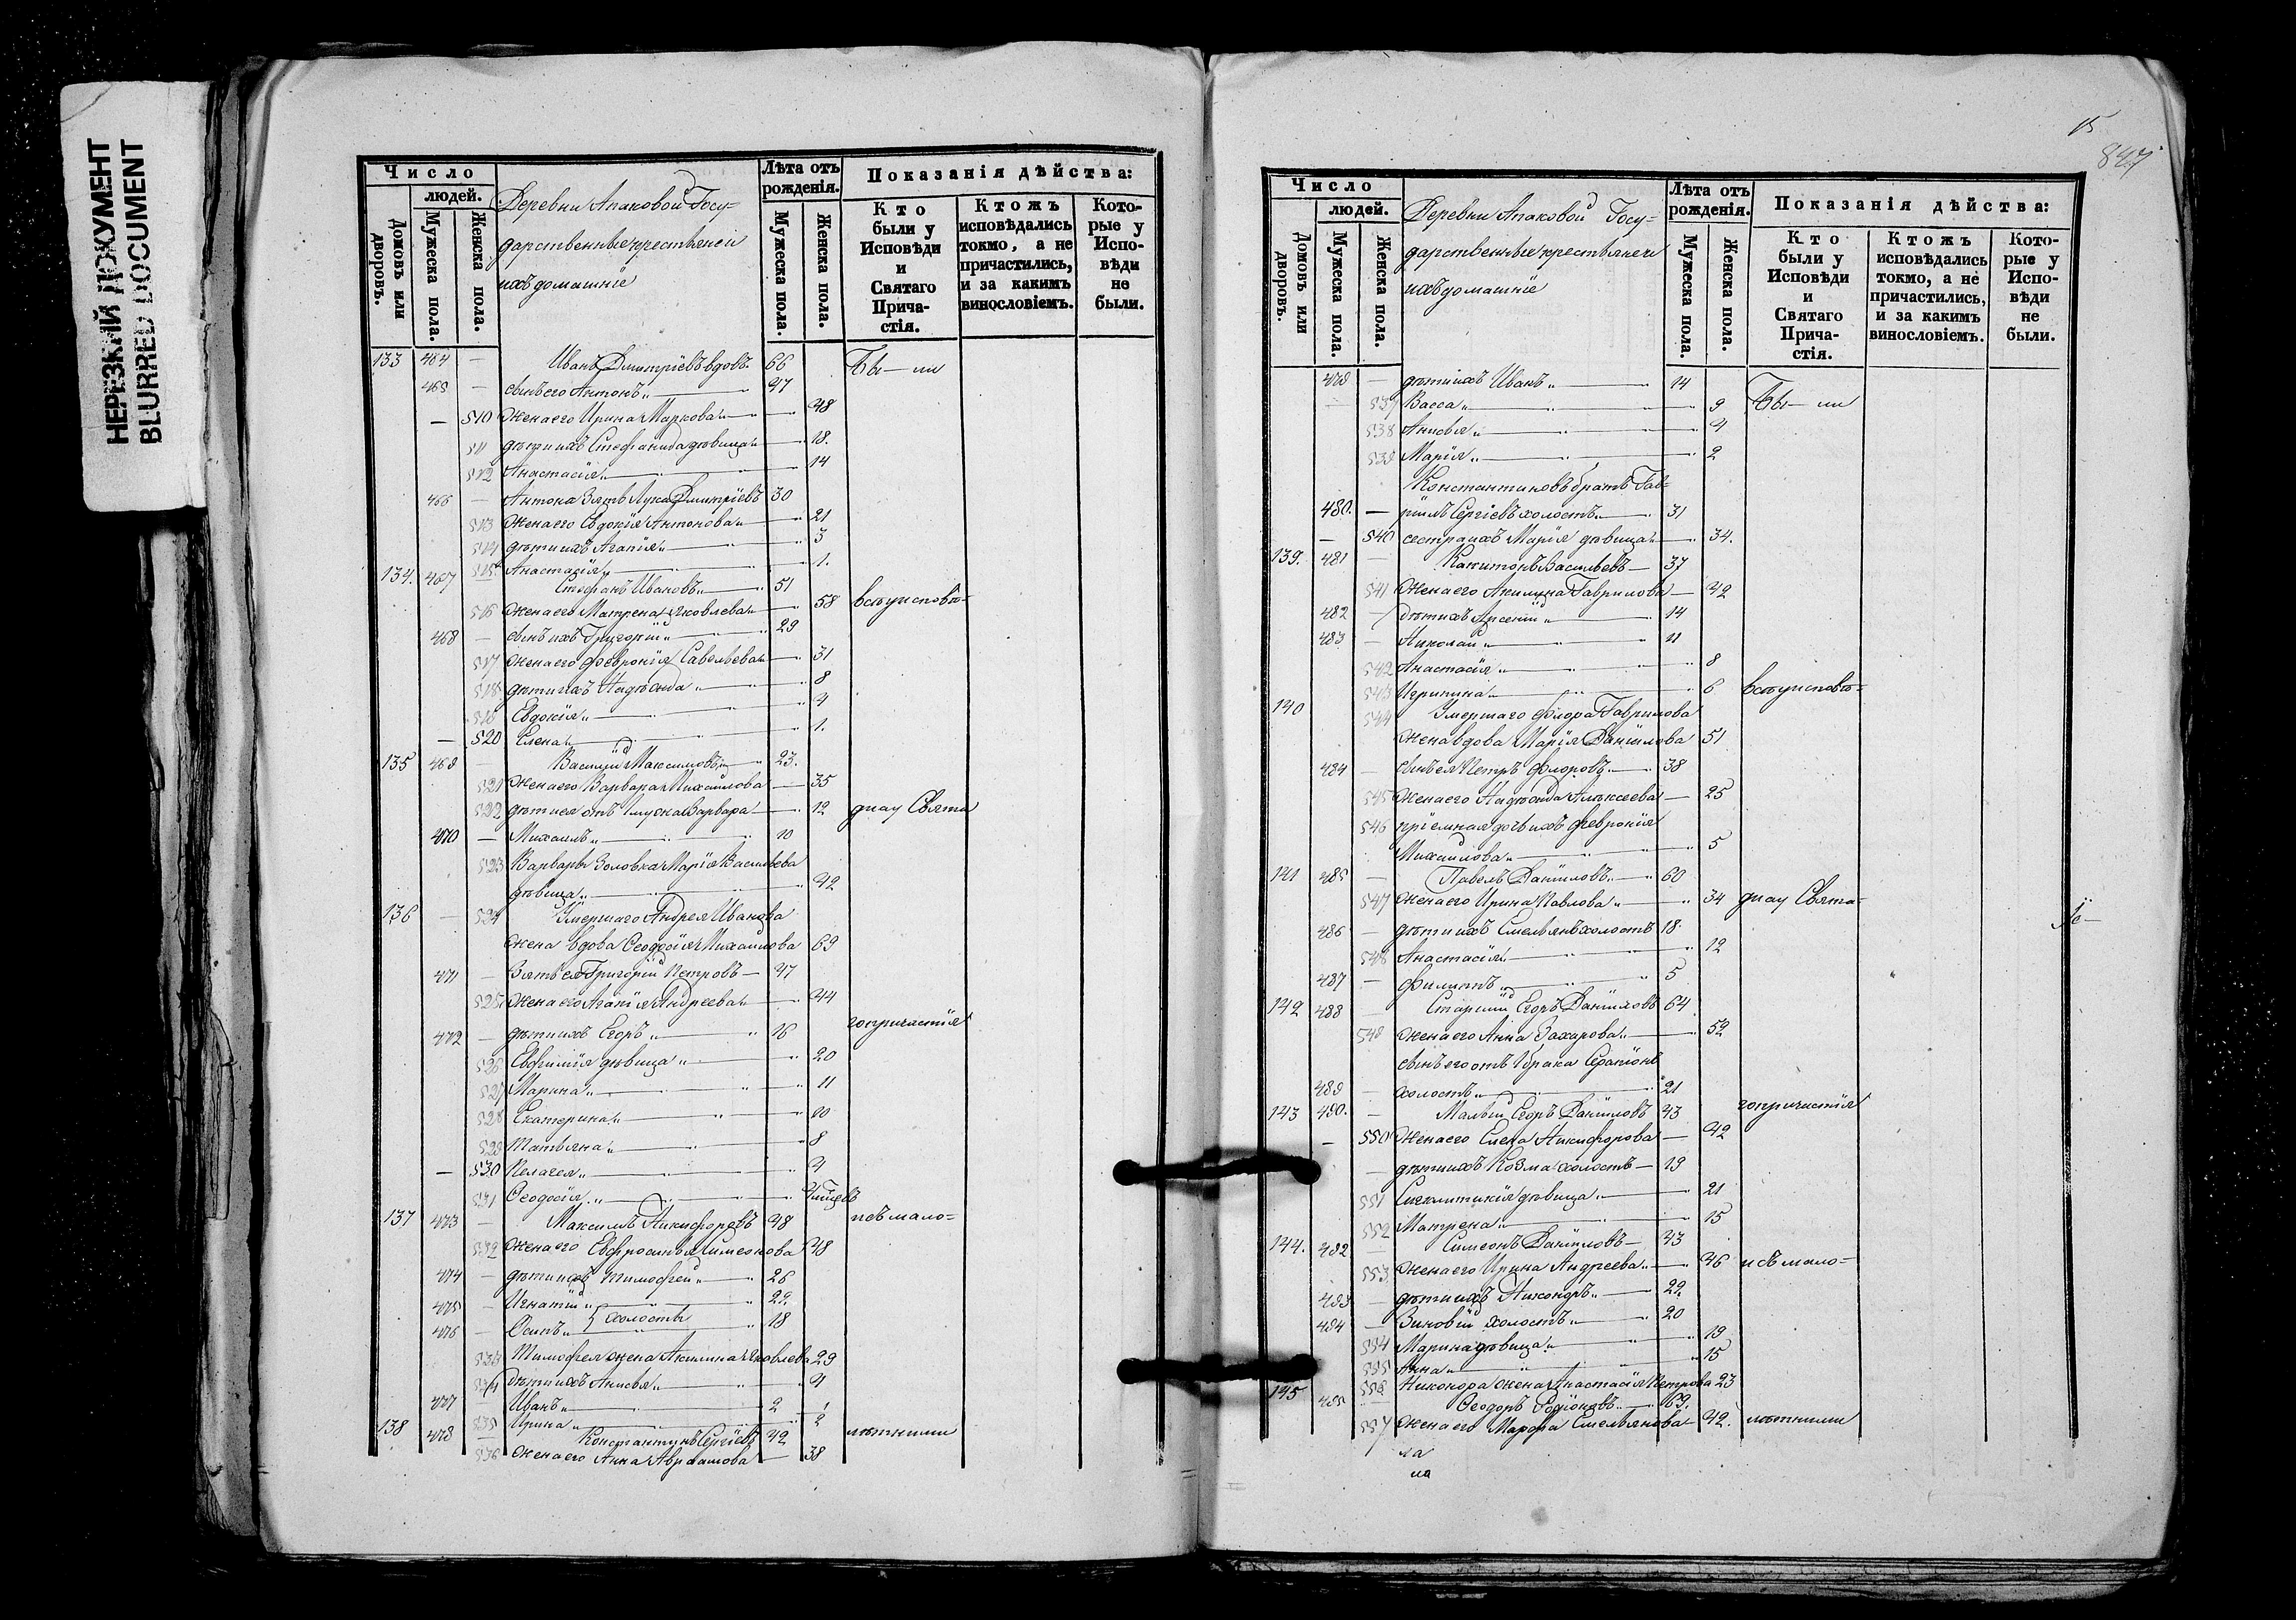 НЕРЕЗКИЙ ДОКУМЕНТ
BLURRED DOCUMENT
Число
людей.
Домовъ или дворовъ.
Мужеска пола.
Женска пола.
Деревни Апаковой Госу-
дарственные крестьяне и
ихъ домашніе
Лѣта отъ рожденія.
Мужеска пола.
Женска пола.
Показанія дѣйства:
Кто были у Исповѣди и Святаго Причастія.
Ктожъ исповѣдались токмо, а не причастились, и за какимъ винословіемъ.
Которые у Исповѣди не были.
133 464 — Иванъ Димитріевъ вдовъ. 66 Бы — ли
465 — сынъ его Антонъ „ 47
— 510 жена его Ирина Маркова „ 48
511 дѣти ихъ Стефанида дѣвица „ 18.
512 Анастасія „ 14
466 — Антона зять Лука Димитріевъ 30
513 жена его Евдокія Антонова „ 21
514 дѣти ихъ Агапія „ 3
515 Анастасія „ 1.
134. 467 Стефанъ Ивановъ „ 51
516 жена его Матрена Яковлева „ 58 всѣ у исповѣ-
468 — сынъ ихъ Григорій „ 29
517 жена его Февронія Савельева „ 31
518 дѣти ихъ Надежда „ 8
519 Евдокія „ 4
— 520 Елена „ 1.
135 469 — Василій Максимовъ „ 23.
521 жена его Варвара Михаилова 35
522 дѣти ея отъ 1 мужа Варвара 12 ди и у Свята
470 — Михаилъ „ 10
523 Варвары золовка Марія Васильева
дѣвица „ 42
136 — 524 Умершаго Андрея Иванова
жена вдова Ѳеодосія Михаилова 69
471 — зять ея Григорій Петровъ — 47
525 жена его Агапія Андреева „ 44
472 — дѣти ихъ Егоръ „ 16 го причастія
526 Евфимія дѣвица „ 20
527 Марина „ 11
528 Екатерина „ 10
529 Татьяна „ 8
— 530 Пелагея „ 4
531 Ѳеодосія „
137 473 — Максимъ Никифоровъ 48 и съ мало-
532 жена его Евфросинья Симеонова 48
474 — дѣти ихъ Тимофей „ 26
475 — Игнатій „ 22.
холосты
476 — Осипъ „ 18
533 Тимофея жена Акилина Яковлева 29
534 дѣти ихъ Анисья „ 4
477 — Иванъ „ 2
535 Ирина „
138 478 Константинъ Сергіевъ 42 лѣтними
536 жена его Анна Авраамова 38
15
847
Число
людей.
Домовъ или дворовъ.
Мужеска пола.
Женска пола.
Деревни Апаковой Госу-
дарственные крестьяне и
ихъ домашніе
Лѣта отъ рожденія.
Мужеска пола.
Женска пола.
Показанія дѣйства:
Кто были у Исповѣди и Святаго Причастія.
Ктожъ исповѣдались токмо, а не причастились, и за какимъ винословіемъ.
Которые у Исповѣди не были.
479 — дѣти ихъ Иванъ „ 14
— 537 Васса „ 9 Бы — ли
538 Анисья „ 4
539 Марія „ 2
Константиновъ братъ Гав-
480. — ріилъ Сергіевъ холостъ „ 31
— 540 сестра ихъ Марія дѣвица „ 34.
139. 481 — Капитонъ Васильевъ — 37
541 жена его Акилина Гаврилова — 42
482 — дѣти ихъ Арсеній „ 14
483 — Николай „ 11
542 Анастасія „ 8
543 Агрипина „ 6 всѣ у исповѣ-
140 544 Умершаго Флора Гаврилова
жена вдова Марія Даніилова 51
484 — сынъ ея Петръ Флоровъ — 38
545 жена его Надежда Алексеева — 25
546 пріемная дочь ихъ Февронія
Михаилова „ 5
141 485 — Павелъ Даніиловъ „ 60
547 жена его Ирина Павлова „ 34 ди и у Свята-
486 — дѣти ихъ Емельянъ холостъ 18.
548 Анастасія „ 12
487 — Филиппъ „ 5
142 488 — Старшій Егоръ Даніиловъ 64
549 жена его Анна Захарова „ 52
сынъ его отъ 1 брака Серапіонъ
489 — холостъ „ 21
143 490. — Малый Егоръ Даніиловъ 43 го причастія
— 550 жена его Елена Никифорова — 42
— дѣти ихъ Козма холостъ — 19
551 Синклитикія дѣвица „ 21
552 Матрена „ 15
144. 492 — Симеонъ Даніиловъ — 43
553 жена его Ирина Андреева „ 46 и съ мало-
493 — дѣти ихъ Никоноръ „ 22.
494 — Зиновій холостъ „ 20
554 Марина дѣвица „ 19
555 Анна „ 15
556 Никонора жена Анастасія Петрова 23
145 495 Ѳеодоръ Родіоновъ „ 63.
557 жена его Марфа Емельянова 42. лѣтними